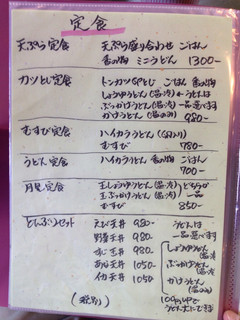 定食
天ぷら定食 天ぷら盛り合わせ ごはん
香の物 ミニうどん 1300-
カツとじ定食 トンカツ ごはん 香の物
しょうゆうどん(温・冷) うどんは
ぶっかけうどん(温・冷) 一品選べます
かけうどん(温のみ) 980-
むすび定食 ハイカラうどん
むすび 780-
うどん定食 ハイカラうどん 香の物 ごはん
700-
月見定食 玉しょうゆうどん(温・冷) どちらか
玉ぶっかけうどん(温・冷) 一品
むすび 850-
どんぶりセット えび天丼 980- うどんは
野菜天丼 980- 一品選べます
980- しょうゆうどん(温・冷)
あなご天丼 1050- ぶっかけうどん(温・冷)
イカ天丼 1050- かけうどん
(温のみ)
(税別) 100円UPで
うどん大にできます